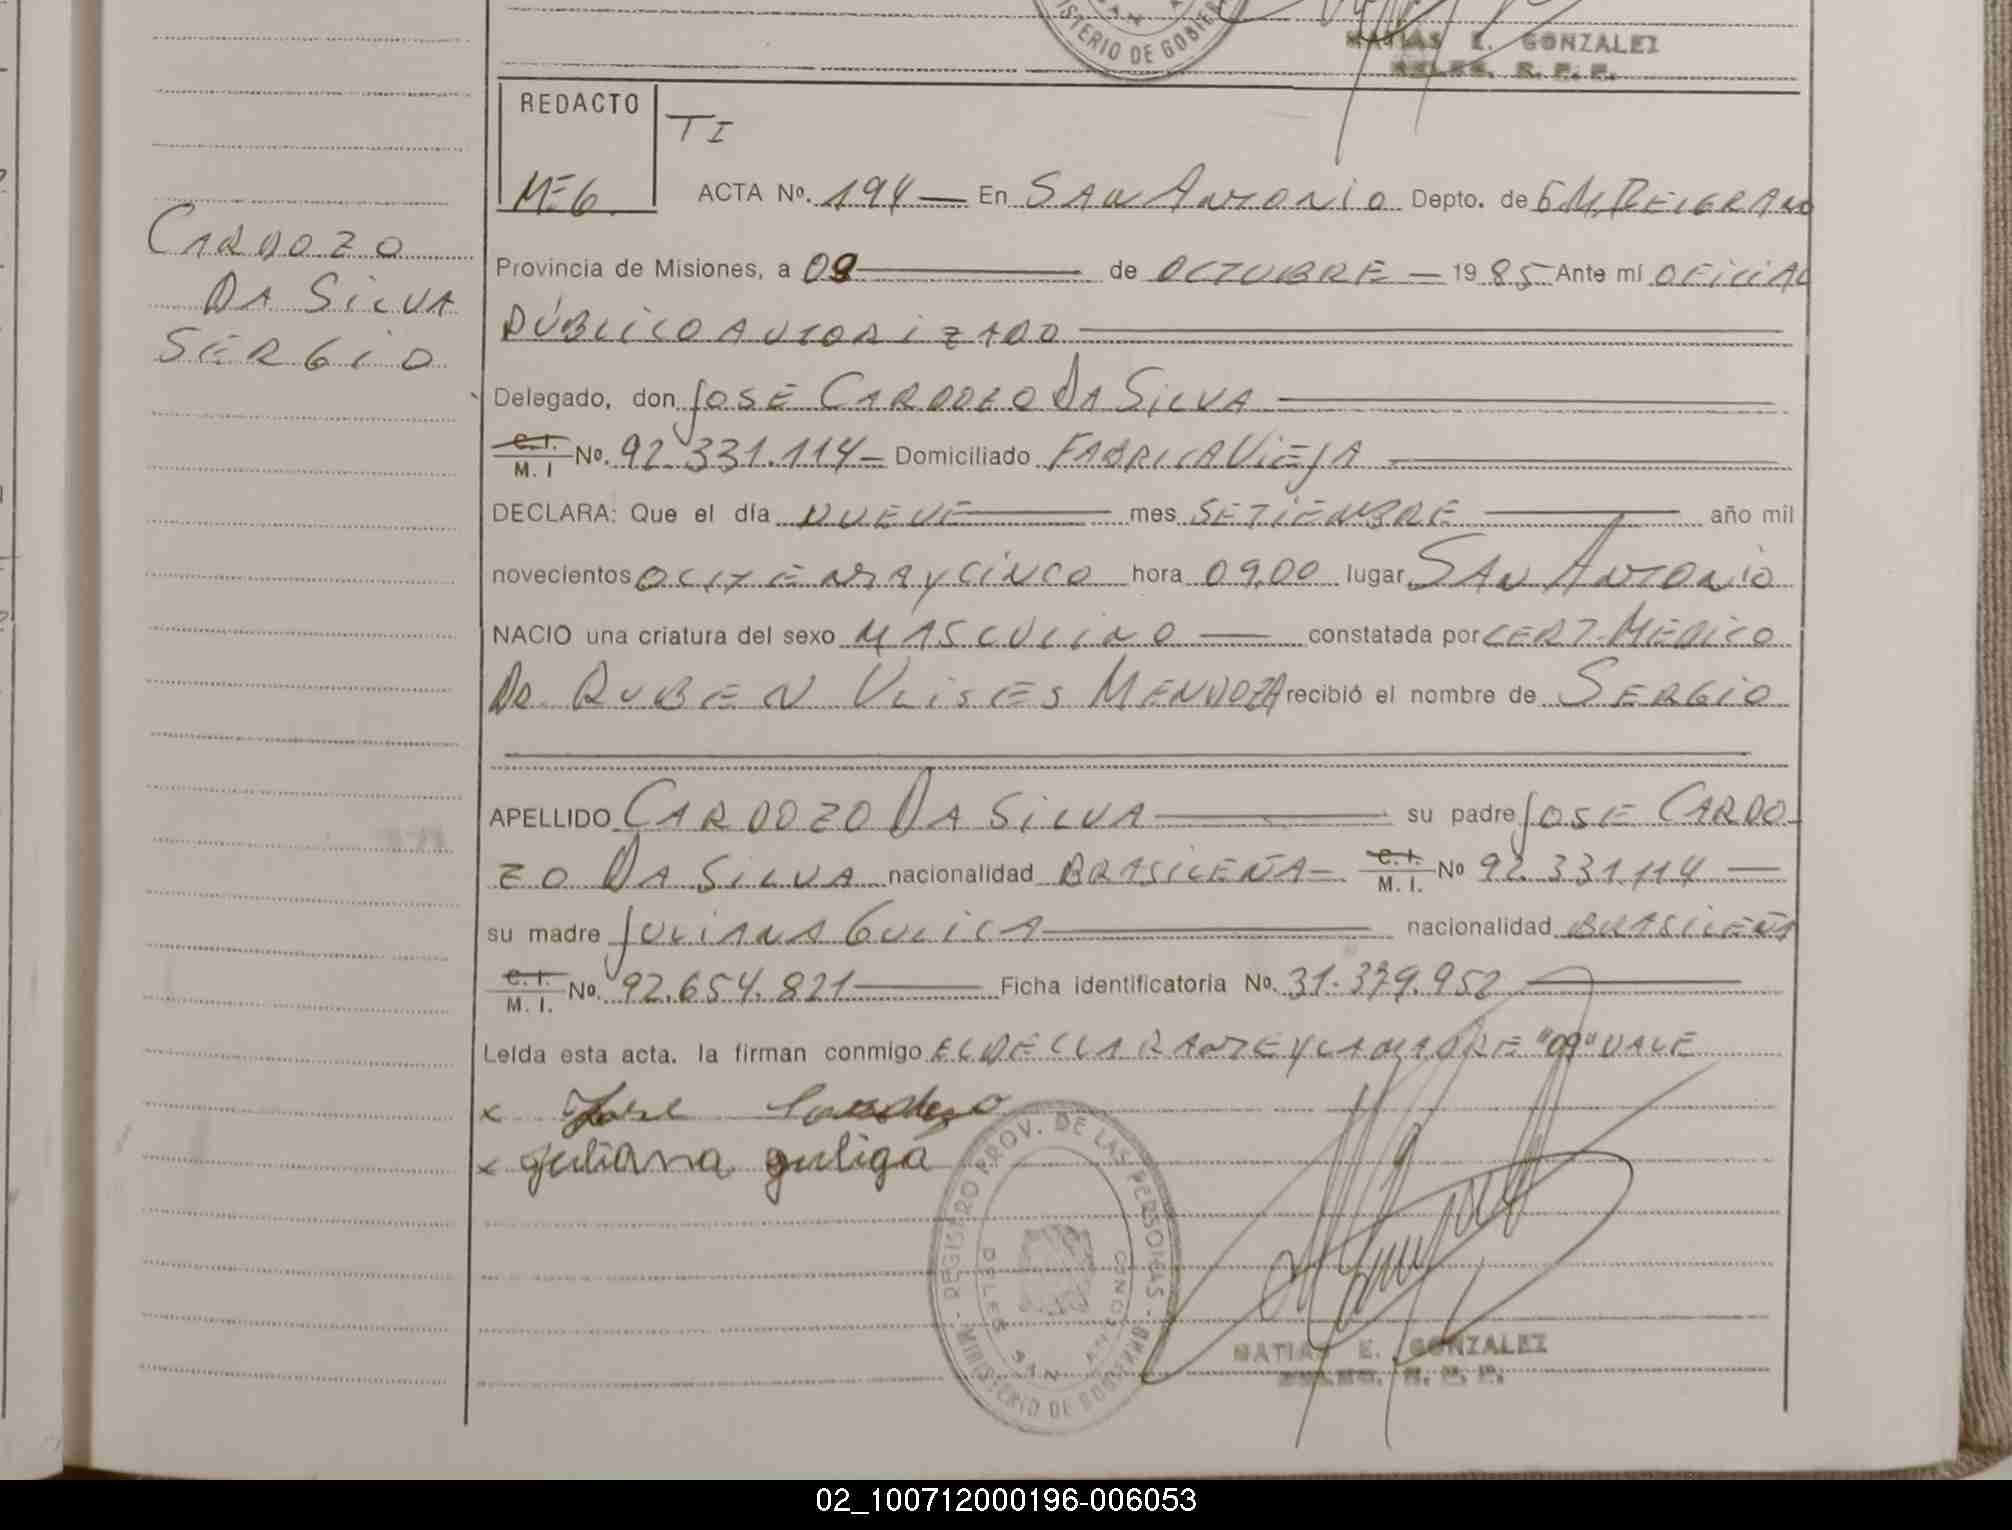 MISTERIO DE GOBIER
MATIAS E. GONZALEZ
R. P. P.
REDACTO
TI
MEG
ACTA Nº. 194 — En SAN ANTONIO Depto. de G M BELGRANO
CARDOZO
DA SILVA
SERGIO
Provincia de Misiones, a 09 de OCTUBRE — 1985 Ante mí OFICIAL
PÚBLICO AUTORIZADO
Delegado, don JOSE CARDOZO DA SILVA
C. I. M. I Nº. 92.331.114 — Domiciliado FABRICA VIEJA
DECLARA: Que el día NUEVE mes SETIEMBRE año mil
novecientos OCHENTA Y CINCO hora 09,00 lugar SAN ANTONIO
NACIO una criatura del sexo MASCULINO — constatada por CERT. MEDICO
DR. RUBEN ULISES MENDOZA recibió el nombre de SERGIO
APELLIDO CARDOZO DA SILVA su padre JOSE CARDO-
ZO DA SILVA nacionalidad BRASILEÑA — C. I. M. I. Nº 92.331.114 —
su madre JULIANA GULICA nacionalidad BRASILEÑA
C. I. M. I. Nº. 92.654.821 — Ficha identificatoria Nº. 31.379.952
Leída esta acta, la firman conmigo EL DECLARANTE Y LA MADRE "09" VALE
x Jose Cardozo
x Juliana guliga
REGISTRO PROV. DE LAS PERSONAS - MINISTERIO DE GOBIERNO -
SAN
MATIAS E. GONZALEZ
02_100712000196-006053